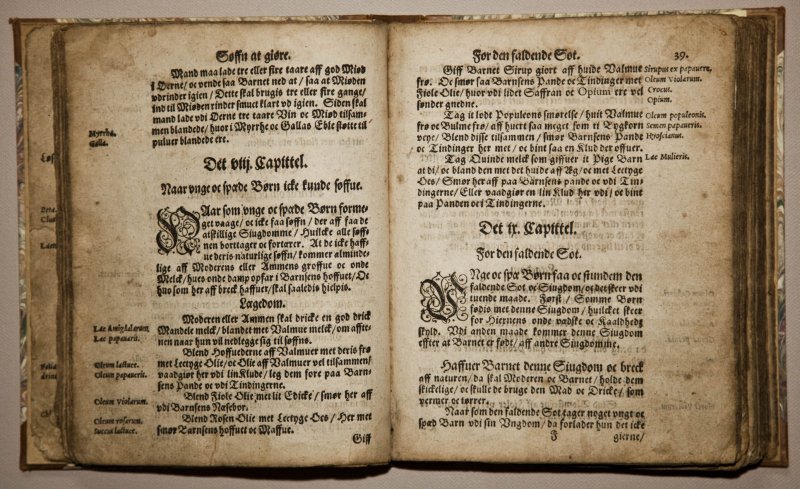 Søffn at giøre.
Mand maa lade tre eller fire taare aff god Miød
i Ørne/ oc vende saa Barnet ned at/ saa at Miøden
vdrinder igien/ Dette skal brugis tre eller fire gange/
ind til Miøden rinder smuct klart vd igien. Siden skal
mand lade vdi Ørne tre taare Vin oc Miød tilsam-
men blandede/ huor i Myrrhe oc Gallas Eble støtte til
puluer blandede ere.
Myrrha.
Galla.
Det viij. Capittel.
Naar vnge oc spæde Børn icke kunde soffue.
NAar som vnge oc spæde Børn forme-
get vaage/ oc icke faa søffn/ der aff faa de
atskillige Siugdomme/ Huilcke alle søff-
nen borttager oc fortærer. At de icke haff-
ue deris naturlige søffn/ kommer alminde-
lige aff Moderens eller Ammens groffue oc onde
Melck/ hues onde damp opfar i Barnsens hoffuet/ Oc
huo som her aff breck haffuer/ skal saaledis hielpis.
Lægedom.
Moderen eller Ammen skal dricke en god drick
Mandele melck/ blandet met Valmue melck/ om affte-
nen naar hun vil nedlegge sig til søffns.
Blend Hoffuederne aff Valmuer met deris frø
met Lectyge Olie/ oc Olie aff Valmuer vel tilsammen/
vaadgiør her vdi lin Klude/ leg dem fore paa Barn-
sens Pande oc vdi Tindingerne.
Blend Fiole Olie met lit Edicke/ smør her aff
vdi Barnsens Næsebor.
Blend Rosen Olie met Lectyge Oes/ Her met
smør Barnsens hoffuet oc Maffue.
Lac Amigdalarum.
Lac papaueris.
Oleum lactucæ.
Oleum papaueris.
Oleum Violarum.
Oleum rosarum.
Succus lactucæ.
Giff
For den faldende Sot.
39.
Giff Barnet Sirup giort aff huide Valmue
frø. Oc smør saa Barnsens Pande oc Tindinger met
Fiole Olie/ huor vdi lidet Saffran oc Opium ere vel
sønder gnedne.
Tag it lodt Populeons smørelse/ huit Valmue
frø oc Bulme frø/ aff huert saa meget som ti Bygkorn
veye/ Blend disse tilsammen/ smør Barnsens Pande
oc Tindinger her met/ oc bint saa en Klud der offuer.
Tag Quinde melck som giffuer it Pige Barn
at di/ oc bland den met det huide aff Æg/ oc met Lectyge
Oes/ Smør her aff paa Barnsens pande oc vdi Tin-
dingerne/ Eller vaadgiør en lin Klud her vdi/ oc bint
paa Panden oc i Tindingerne.
Sirupus ex papauere.
Oleum Violarum.
Crocus.
Opium.
Oleum populeonis.
Semen papaueris.
Hyosciamus.
Lac Mulieris.
Det ix. Capittel.
For den faldende Sot.
VNge oc spæ Børn faa oc stundem den
faldende Sot oc Siugdom/ oc det skeer vdi
tuende maade. Først/ Somme Børn
fødis met denne Siugdom/ huilcket skeer
for Hiernens onde vædske oc Kaaldheds
skyld. Vdi anden maade kommer denne Siugdom
effter at Barnet er født/ aff andre Siugdomme.
Haffuer Barnet denne Siugdom oc breck
aff naturen/ da skal Moderen oc Barnet/ holde dem
skickelige/ oc skulle de bruge den Mad oc Dricke/ som
vermer oc tørrer.
Naar som den faldende Sot tager noget vngt oc
spæd Barn vdi sin Vngdom/ da forlader hun det icke
F
gierne/